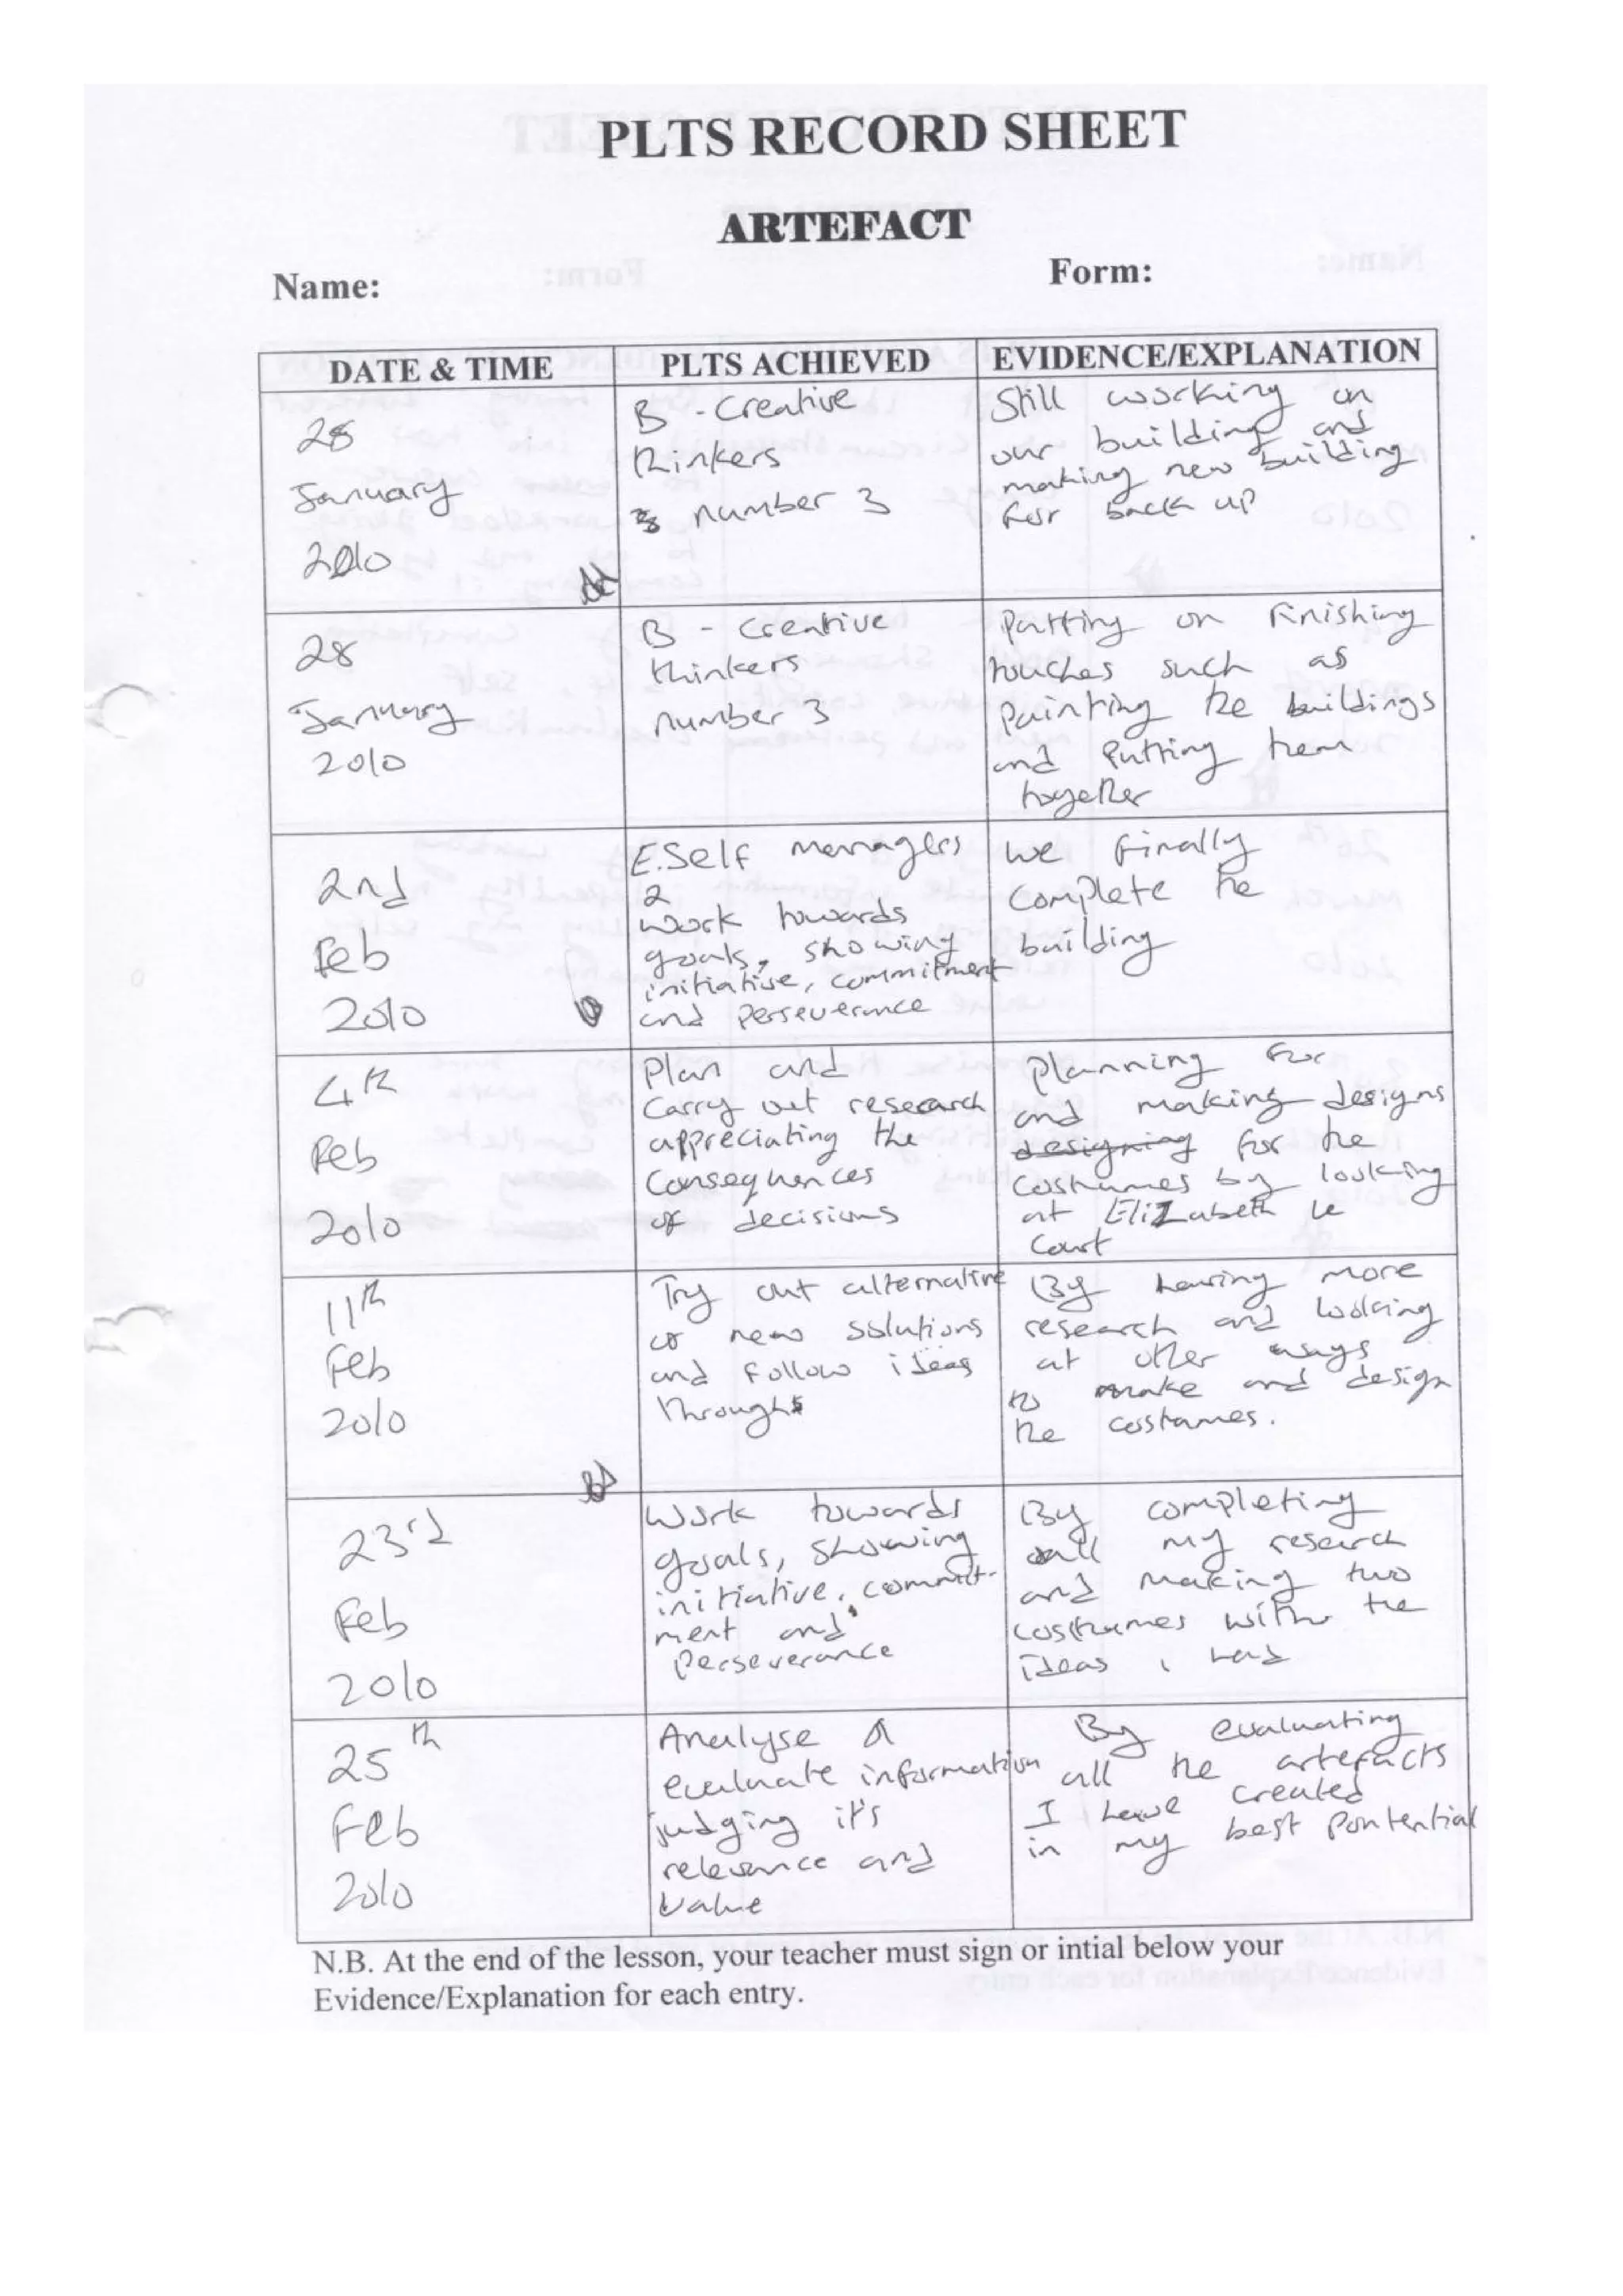 PLTS RECORD SHEET
ARTEFACT
Name:
Form:
DATE & TIME
PLTS ACHIEVED
EVIDENCE/EXPLANATION
28
January
2010
B - Creative
thinkers
number 3
Still working on
our building and
making new building
for back up
28
January
2010
B - Creative
thinkers
number 3
Putting on finishing
touches such as
painting the buildings
and putting them
together
2nd
Feb
2010
E. Self managers
2
Work towards
goals, showing
initiative, commitment
and perseverance
we finally
complete the
building
4th
Feb
2010
Plan and
carry out research
appreciating the
consequences
of decisions
planning for
and making designs
designing for the
costumes by looking
at Elizabeth le
Court
11th
Feb
2010
Try out alternative
or new solutions
and follow ideas
through
By having more
research and looking
at other ways
to make and design
the costumes.
23rd
Feb
2010
Work towards
goals, showing
initiative, commit-
ment and
perseverance
By completing
all my research
and making two
costumes with the
ideas i had
25th
Feb
2010
Analyse &
evaluate information
judging it's
relevance and
value
By evaluating
all the artefacts
I have created
in my best pontential
N.B. At the end of the lesson, your teacher must sign or intial below your
Evidence/Explanation for each entry.